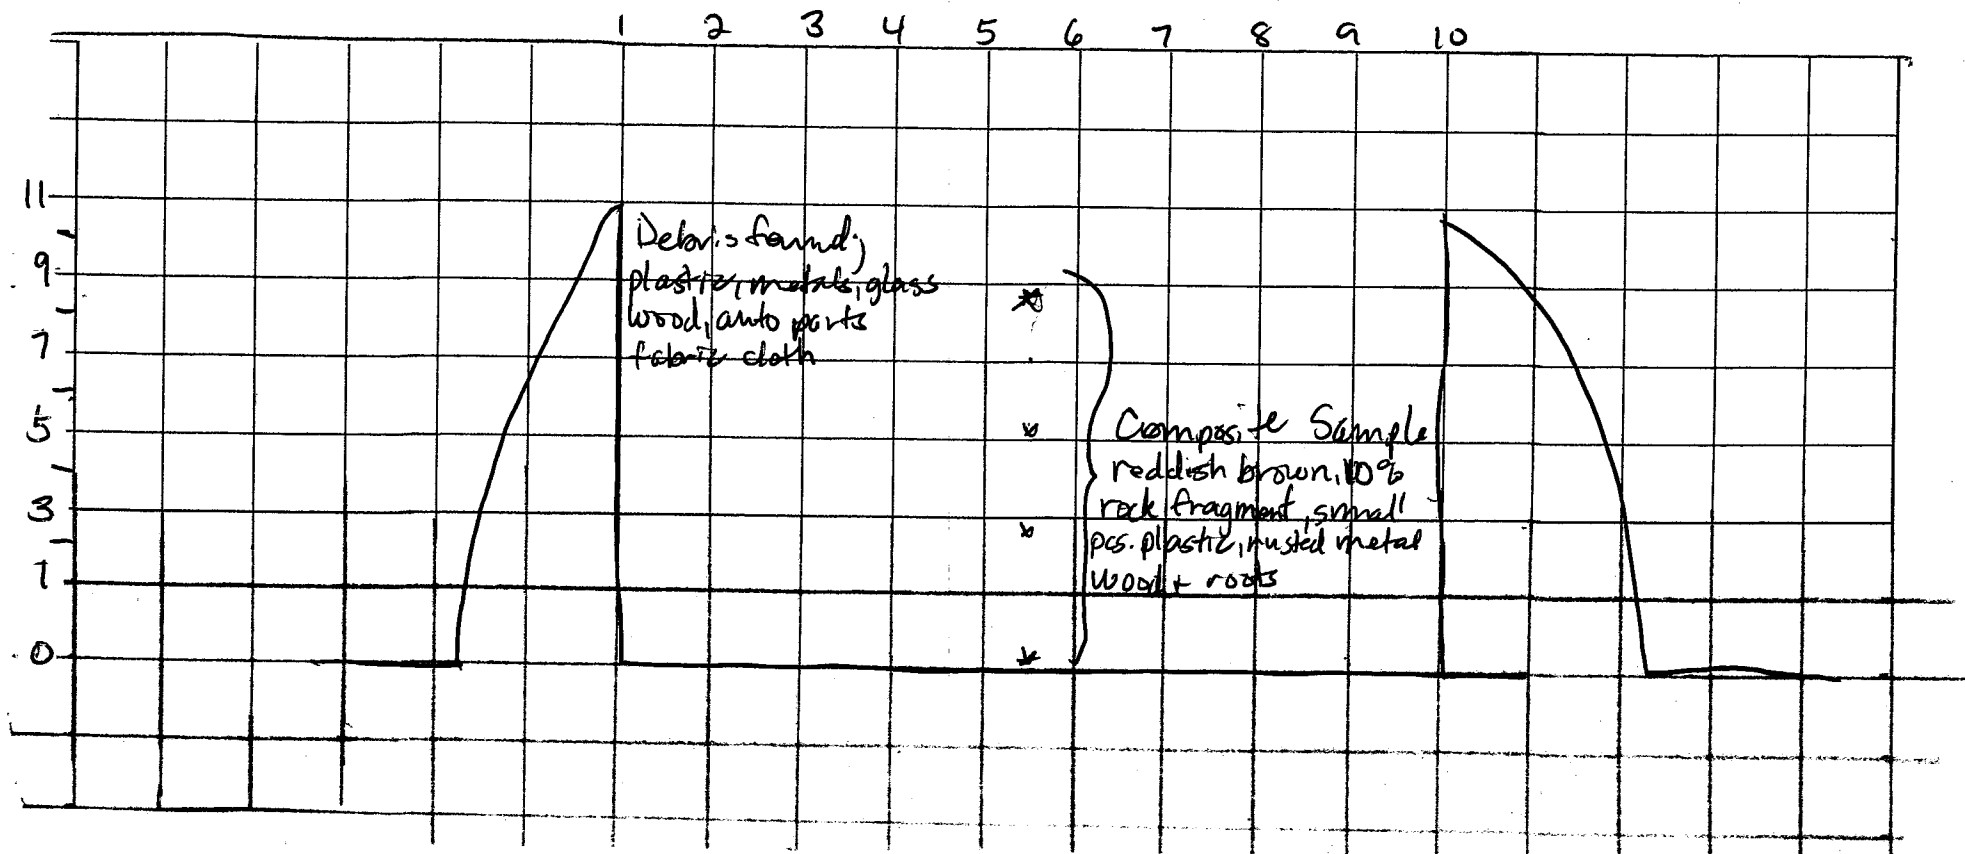 1 2 3 4 5 6 7 8 9 10
11
9
7
5
3
1
0
Debris found;
plastic, metals, glass
wood, auto parts
fabric cloth
Composite Sample
reddish brown, 10%
rock fragment, small
pcs. plastic, rusted metal
wood + roots